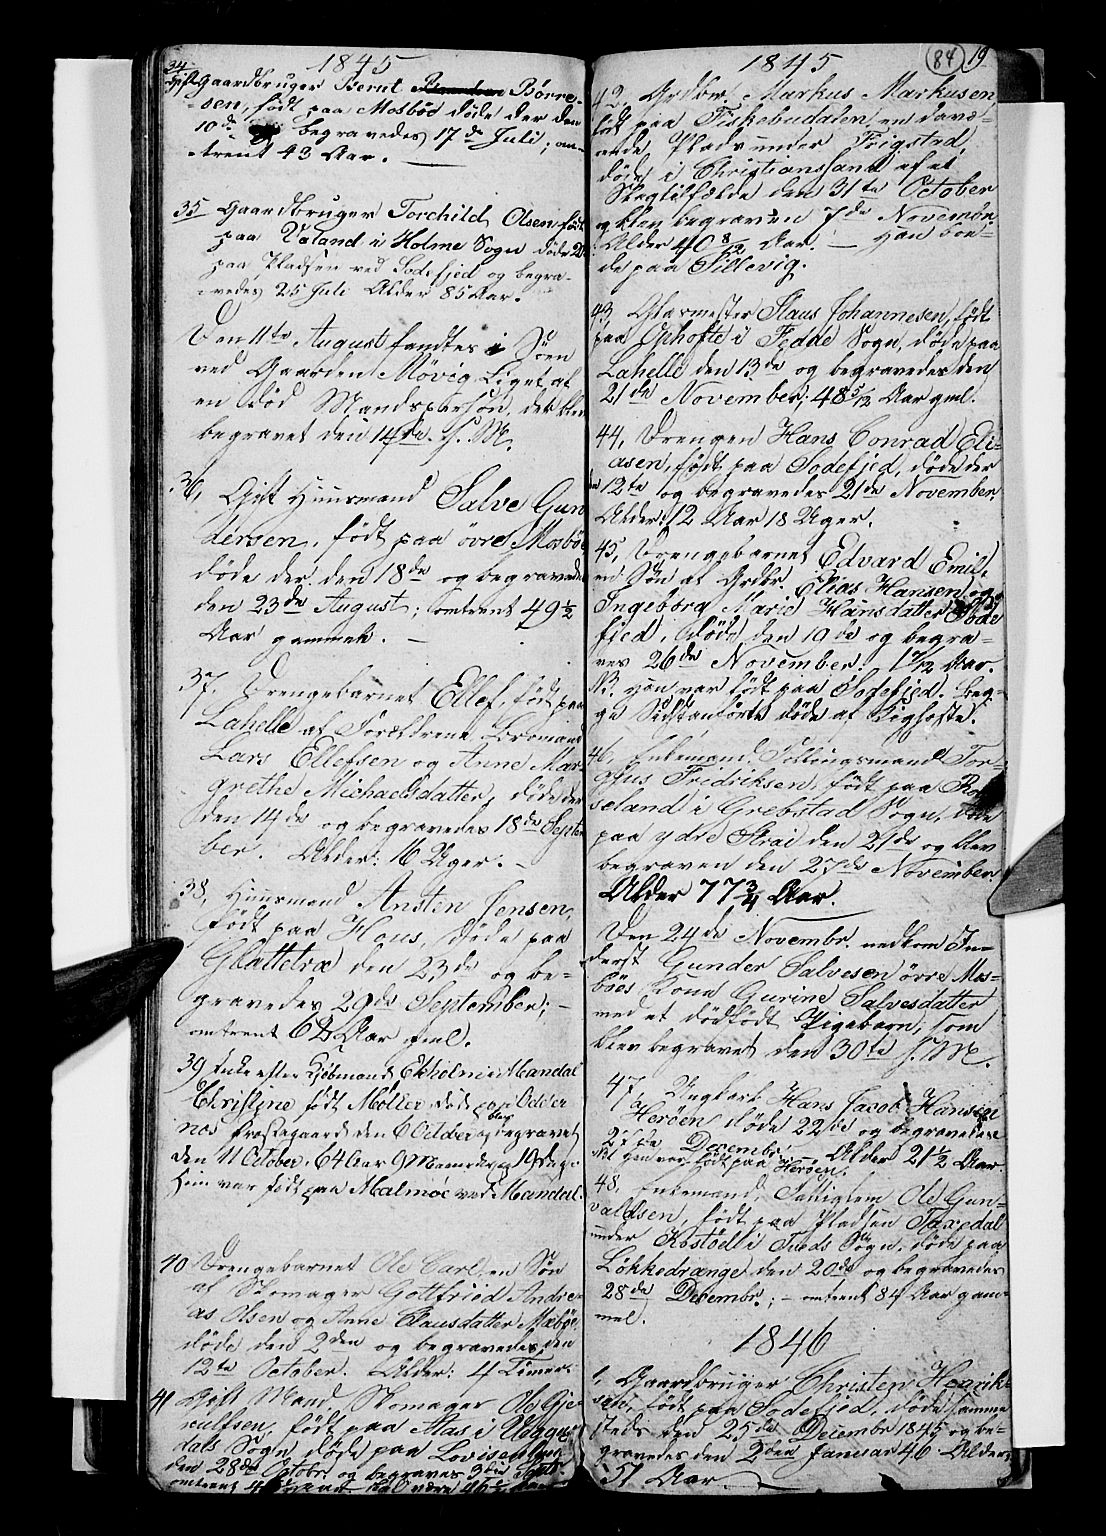 1845
34
Gift Gaardbruger Bernt Børre-
sen, født paa Mosbøe döde der den
10de begravedes 17de Juli; om-
-trent 43 Aar. —
35 Gaardbruger Torchild Olsen født
paa Valand i Holme Sogn döde
paa Pladsen ved Sodefjed og begra-
-vedes 25 Juli Alder 85 Aar.
Den 11te August fandtes i Söen
ved Gaarden Møvig Liget af
en död Mandsperson, det blev
begravet den 14de s. M.
36, Gift Huusmand Salve Gun
dersen, født paa övre Mosbøe
döde der den 18de og begravedes
den 23de August; omtrent 49½
Aar gammel. —
37, Drengebarnet Ellef, født paa
Lahelle af Forældrene
Lars Ellefsen og Anne Mar-
grethe Michaelsdatter, døde der
den 14de og begravedes 18de Septem
ber. Alder: 16 Uger. —
38, Huusmand Ansten Jensen,
født paa Hous, döde paa
Glattetræ den 23de og be-
gravedes 29de September; —
omtrent 62 Aar gml.
39 Enke efter Kjöbmand Ekholm i Mandal
Christine født Møller død paa Odder
næs Præstegaard den 6 October og blev begravet
den 11 October, 64 Aar 9 Maaneder og 19 Dage.
Hun var født paa Malmøe ved Mandal.
40 Drengebarnet Ole Carl, en Søn
af Skomager Gottfried Andre-
as Olsen og Anne Clausdatter Mæbøe,
døde den 2den og begravedes den
12te October. Alder: 4 Timer.
41 Gift Mand, Skomager Ole Gje
rulfsen, født paa Aas i Undgun
dals Sogn døde paa Lovisenberg
den 28de Octobr. og begraves 3die
omtrent
1845
84
19
42, Grdbr. Markus Markusen,
født paa Fiskebudalen, en davæ-
rende Plads under Frigstad,
döde i Christianssand af et
Slagtilfælde den 31te October
og blev begraven 7de November
Alder 40 8/12 Aar. — Han boe-
de paa Tillevig.
43, Glarmester Klaus Johannesen, født
paa Ophofte i Fedde Sogn, döde paa
Lahelle den 13de og begravedes den
21de November; 48 5/12 Aar gml.
44, Drengen Hans Conrad Eli-
asen, født paa Sodefjed, døde der
den 12te og begravedes 21de November.
Alder: 12 Aar 18 Uger.
45, Drengebarnet Edvard Emil,
en Søn af Grdbr. Elias Hansen og
Ingeborg Marie Hansdatter Sode
fjed, døde den 19de og begra-
ves 26de November. 1 /12 Aar.
NB. Han var født paa Sodefjed. Beg-
ge Sidstanførte døde af Kighoste.
46, Enkemand, Follingsmand Tor-
gjus Fridriksen, født paa Ro
seland i Grebstad Sogn, døde
paa ydre Strai den 21de og blev
begraven den 27de November.
Alder 77¾ Aar.
Den 24de Novembr. nedkom In-
derst Gunder Salvesen övre Mos-
böes Kone Gurine Salvesdatter
med et dödfödt Pigebarn, som
blev begravet den 30te s. M.
47, Ungkarl Hans Jacob Hansen
Herøen døde 22de og begravedes
27de Decembr. Alder 21½ Aar
NB: Han var født paa Herøen.
48, Enkemand, Fattiglem Ole Gun-
valdsen, født paa Pladsen Faxedal
under Kostøl i Tveds Sogn, døde paa
Løkkedrange den 20de og begravedes
28de Decembr.; — omtrent 84 Aar gam-
mel.
1846
1. Gaardbruger Christen Henrik-
sen, født paa Sodefjed, döde samme
steds den 25de Decembr 1845 og be-
gravedes den 2den Januar 46 Alder:
51 Aar.